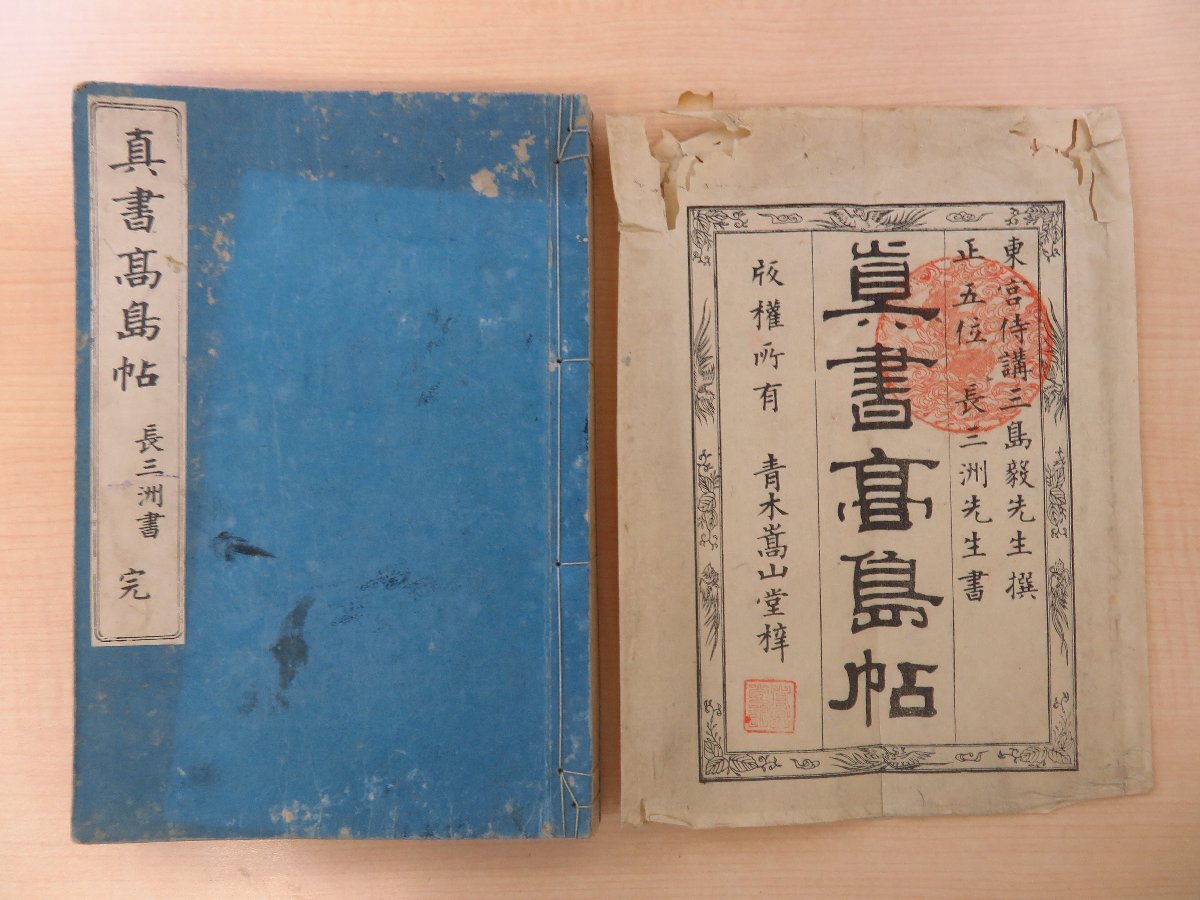 真書髙島帖 長三洲書 完
東宮侍講三島毅先生撰
正五位 長三洲先生書
眞書高島帖
版權所有 青木嵩山堂梓